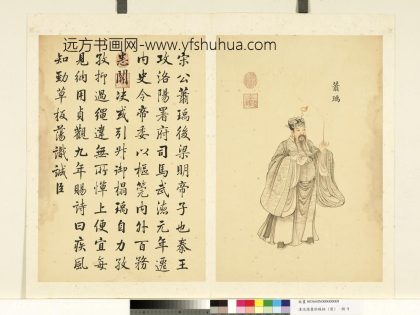 远方书画网-www.yfshuhua.com
蕭瑀
宋公蕭瑀後梁明帝子也秦王
攻洛陽署府司馬武德元年遷
內史令帝委以樞筦內外百務
悉關決或引升御榻瑀自力孜
孜抨過繩違無所憚上便宜每
見納用貞觀九年賜詩曰疾風
知勁草板蕩識誠臣